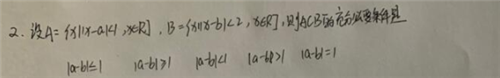 2. 设A={x||x-a|<1,x∈R},B={x||x-b|<2,x∈R},则A⊂B的充分必要条件是
|a-b|≤1 |a-b|≥1 |a-b|<1 |a-b|>1 |a-b|=1